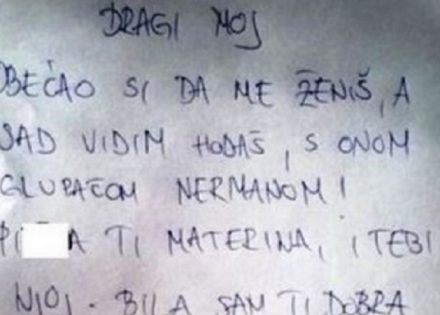 DRAGI MOJ
OBEĆAO SI DA ME ŽENIŠ, A
SAD VIDIM HODAŠ, S ONOM
GLUPAČOM NERMANOM!
PI A TI MATERINA, I TEBI
NJOJ. BILA SAM TI DOBRA